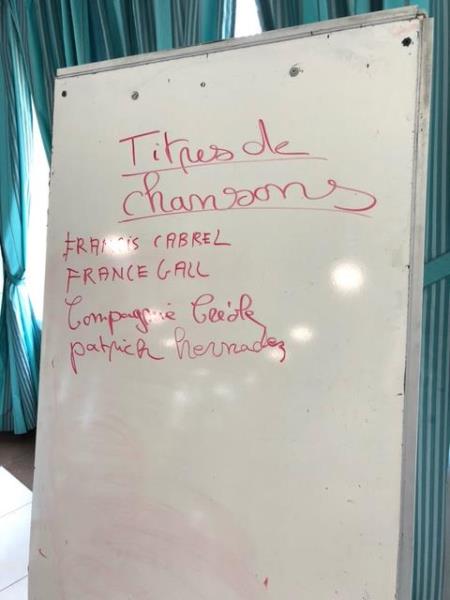 Titres de
chansons
FRANCIS CABREL
FRANCE GALL
Compagnie Créole
patrick hernadez